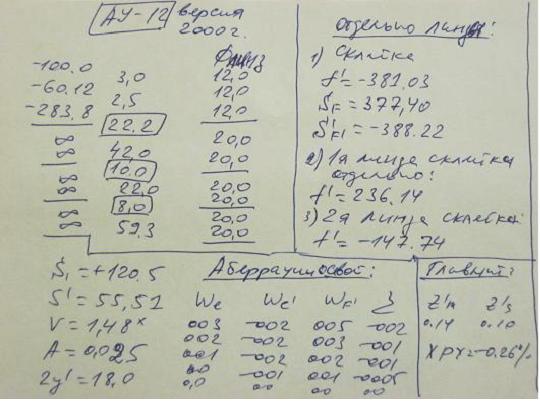 АУ-12 версия
2000г.
Ф линз
-100.0 3,0 12,0
-60.12 2,5 12,0
-283,8 12,0
22.2
∞ 20,0
∞ 42,0 20,0
10,0
∞ 22,0 20,0
∞ 20,0
8,0
∞ 20,0
∞ 59,3 20,0
отдельно линзы:
1) Склейка
f' = -381.03
SF = 377,40
S'F' = -388.22
2) 1я линза склейки
отдельно:
f' = 236.14
3) 2я линза склейки
f' = -147.74
S1 = +120.5
S' = 55,51
V = 1,48x
A = 0,025
2y' = 18,0
Аберрации осевой:
We Wc' WF' Σ
003 -002 005 -002
002 -002 003 -001
001 -002 002 -001
00 -001 001 -0005
0,0 00 00 00
Главный:
Z'm Z's
0.14 0.10
X РУ = -0.26%